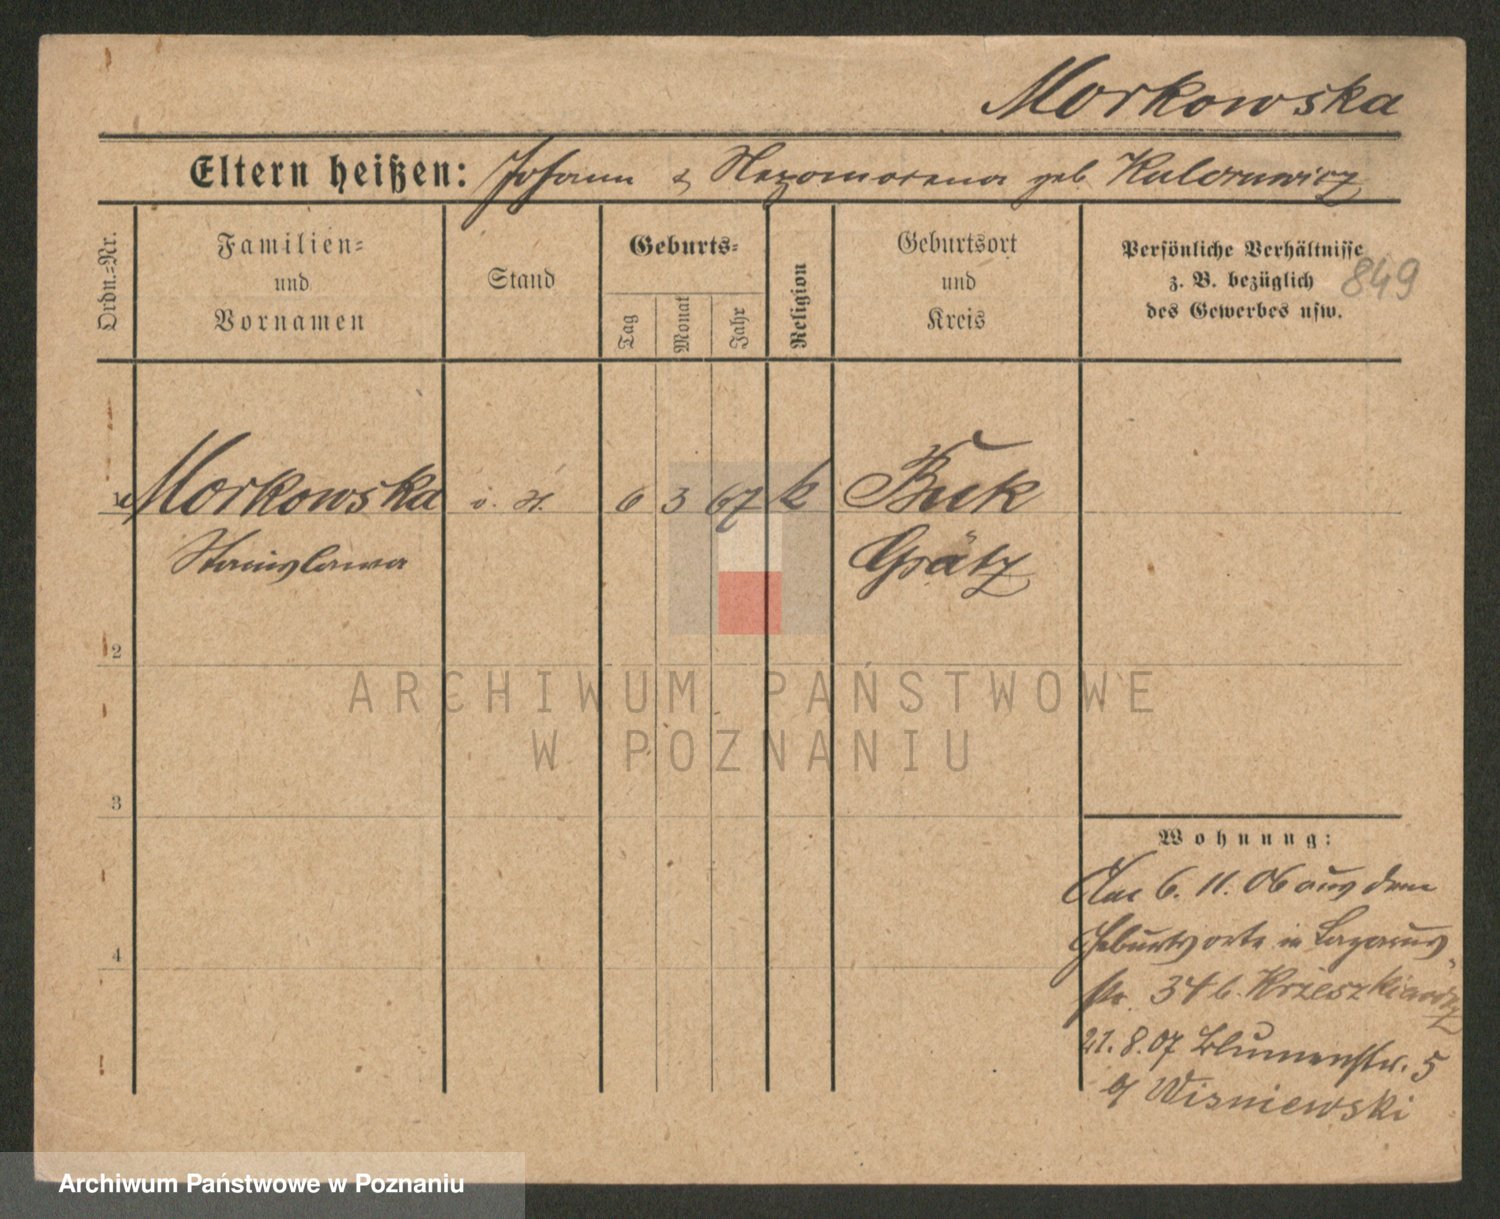 Morkowska
Eltern heißen: Johann & Nepomocena geb
Ordn.=Nr.
Familien=
und
Vornamen
Stand
Geburts=
Tag
Monat
Jahr
Religion
Geburtsort
und
Kreis
Persönliche Verhältnisse
z. B. bezüglich
des Gewerbes usw.
849
1 Morkowska o. H. 6 3 67 k Buk
Stanislawa Grätz
2
3
4
Wohnung:
Am 6. 11. 06 aus dem
Geburtsorte in Lazarus
str. 34 b. Krzeszkiewicz
21. 8. 07 Blumenstr. 5
b/ Wisniewski
ARCHIWUM PAŃSTWOWE
W POZNANIU
Archiwum Państwowe w Poznaniu